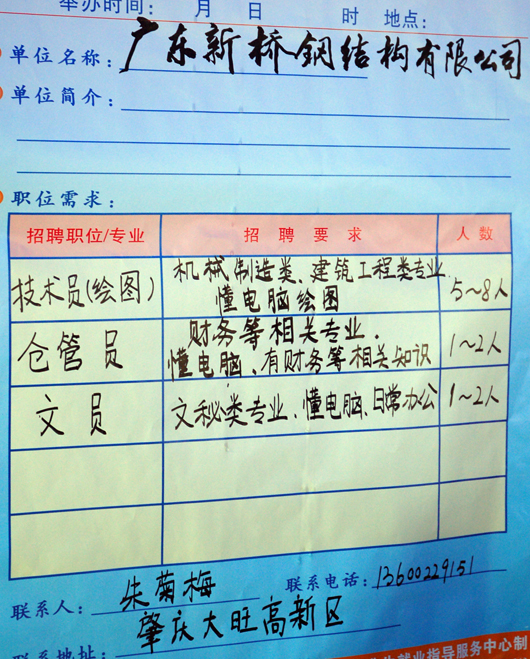 举办时间： 月 日 时 地点：
单位名称：广东新桥钢结构有限公司
单位简介：
职位需求：
招聘职位/专业 招聘要求 人数
技术员(绘图) 机械制造类、建筑工程类专业、 5~8人
懂电脑绘图
仓管员 财务等相关专业、 1~2人
懂电脑、有财务等相关知识
文员 文秘类专业、懂电脑、日常办公 1~2人
联系人：朱菊梅 联系电话：13600229151
联系地址：肇庆大旺高新区
就业指导服务中心制